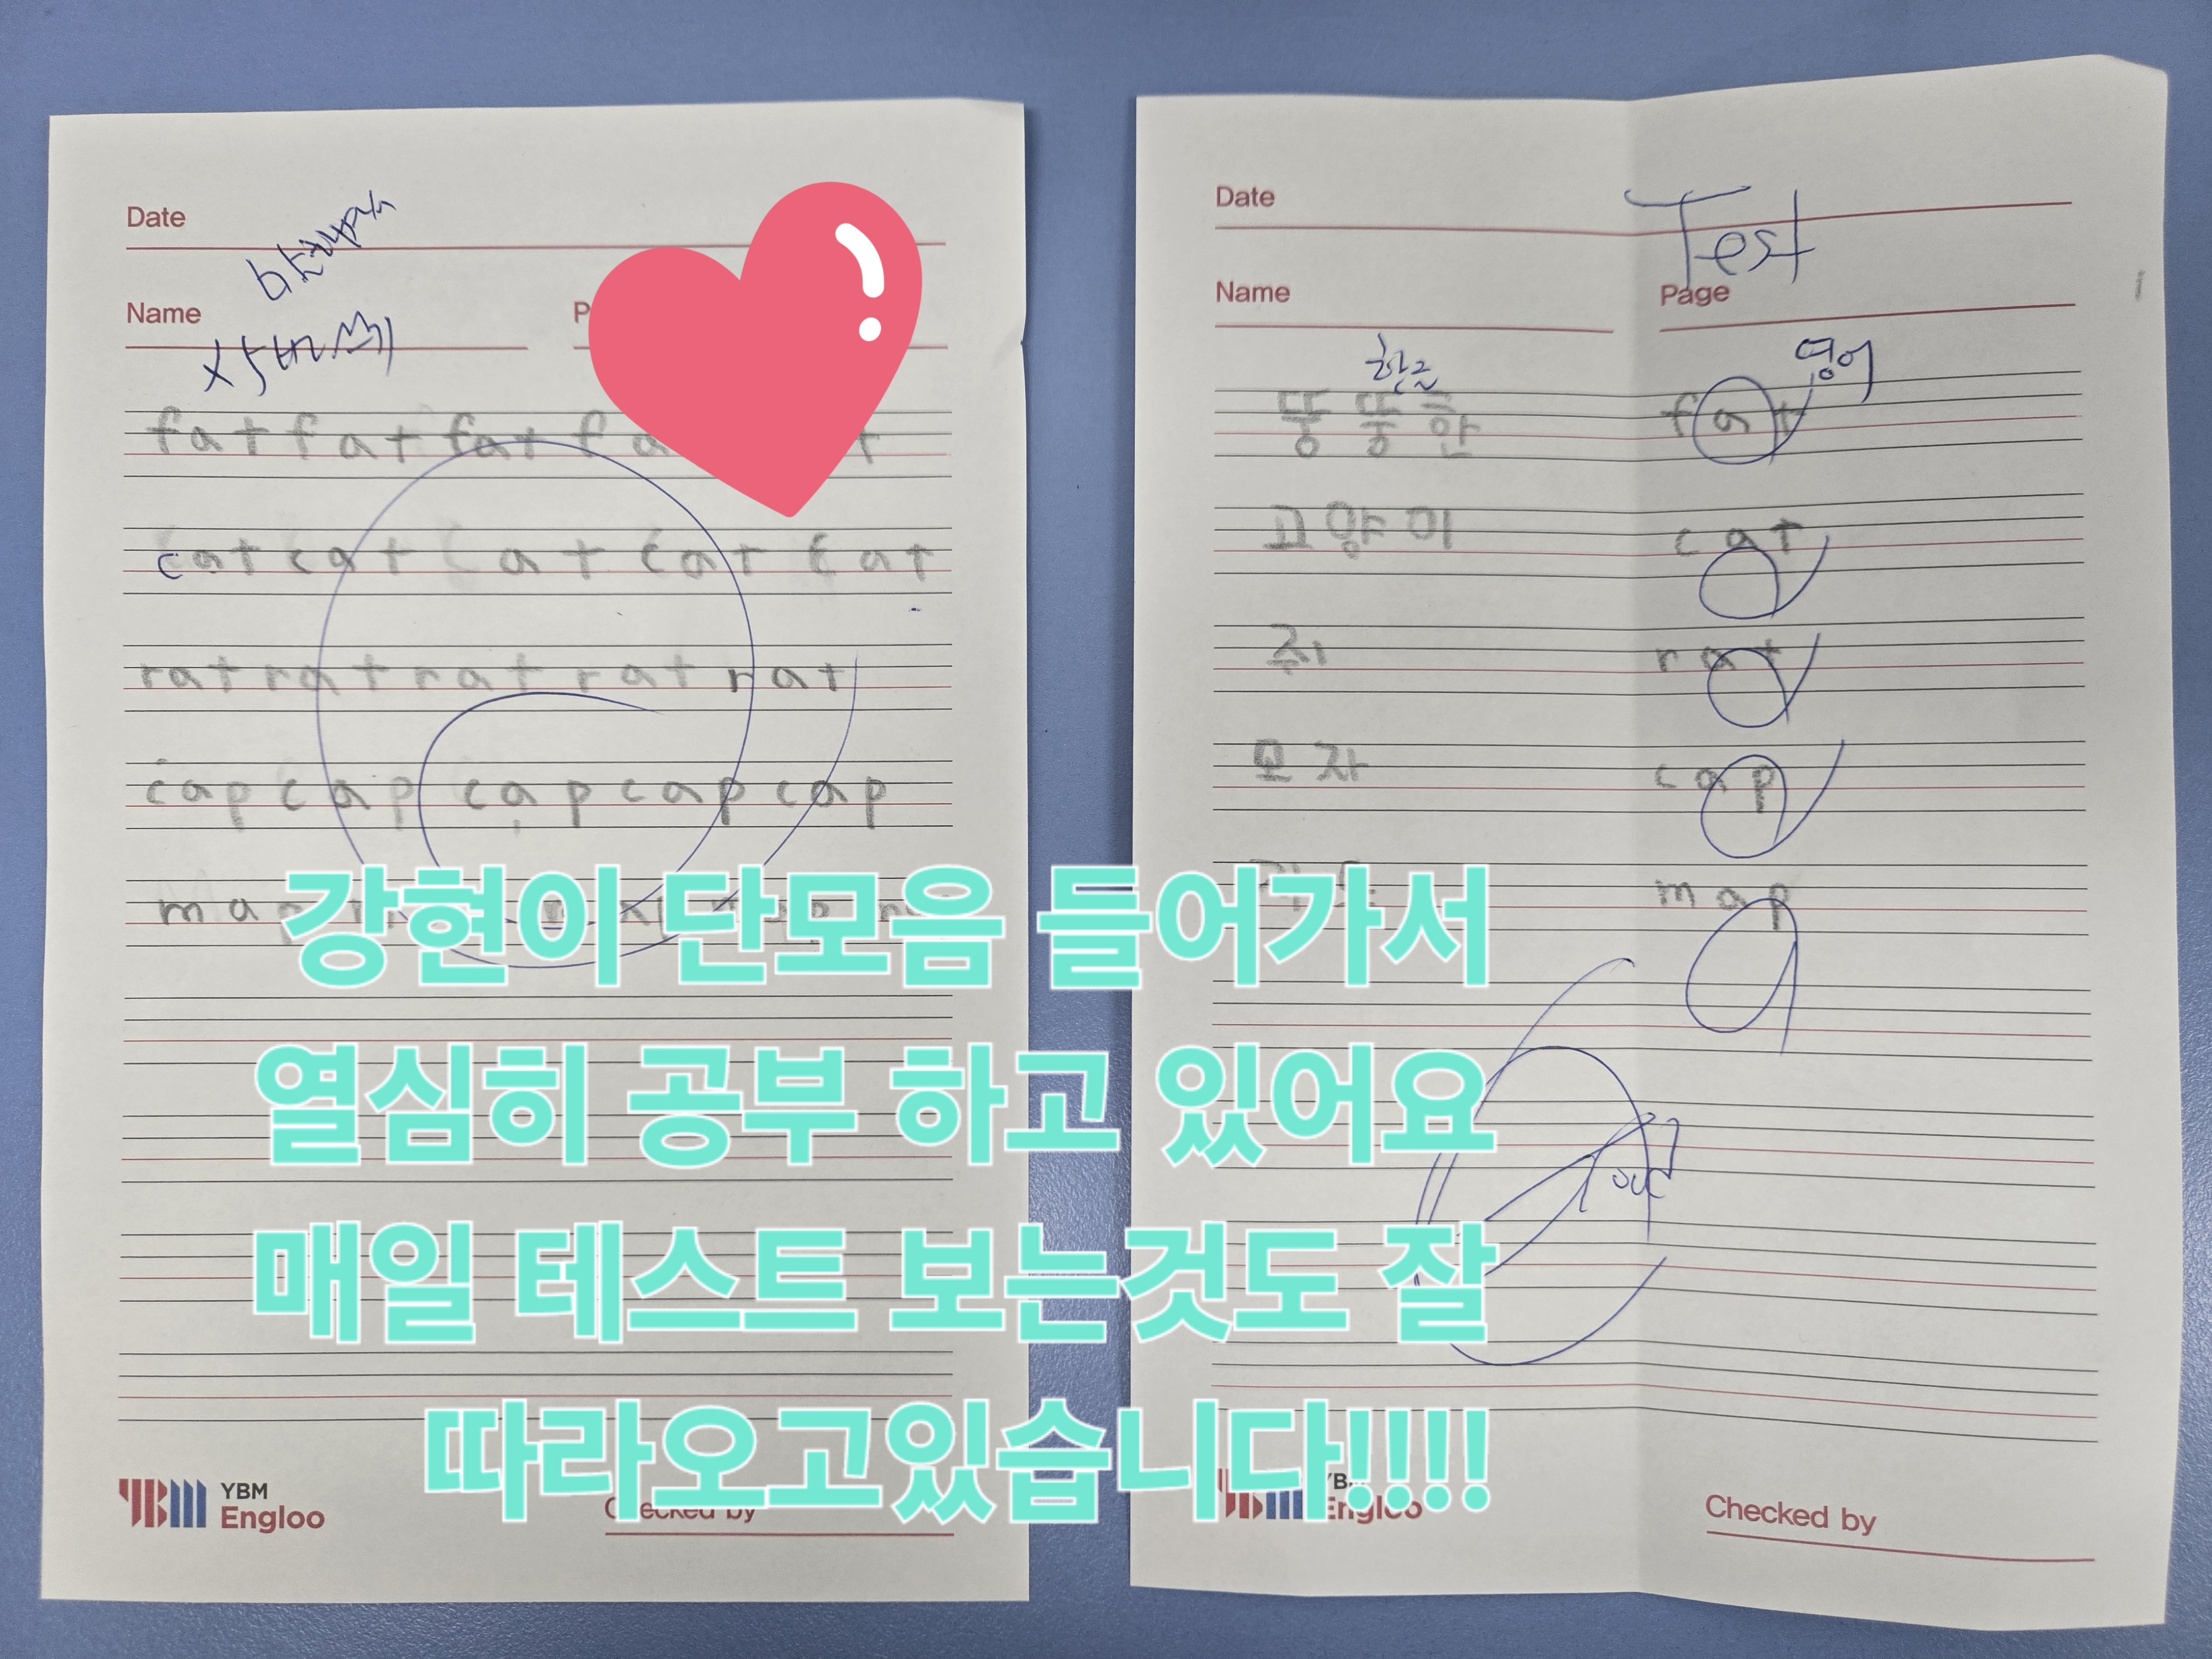 Date
Name
fat fat fat fa
cat cat cat cat cat
rat rat rat rat rat
cap cap cap cap cap
YBM
Engloo
Checked by
Date
Test
Name
Page
한글
영어
뚱뚱한 fat
고양이 cat
쥐 rat
모자 cap
map
Engloo
Checked by
강현이 단모음 들어가서
열심히 공부 하고 있어요
매일 테스트 보는것도 잘
따라오고있습니다!!!!